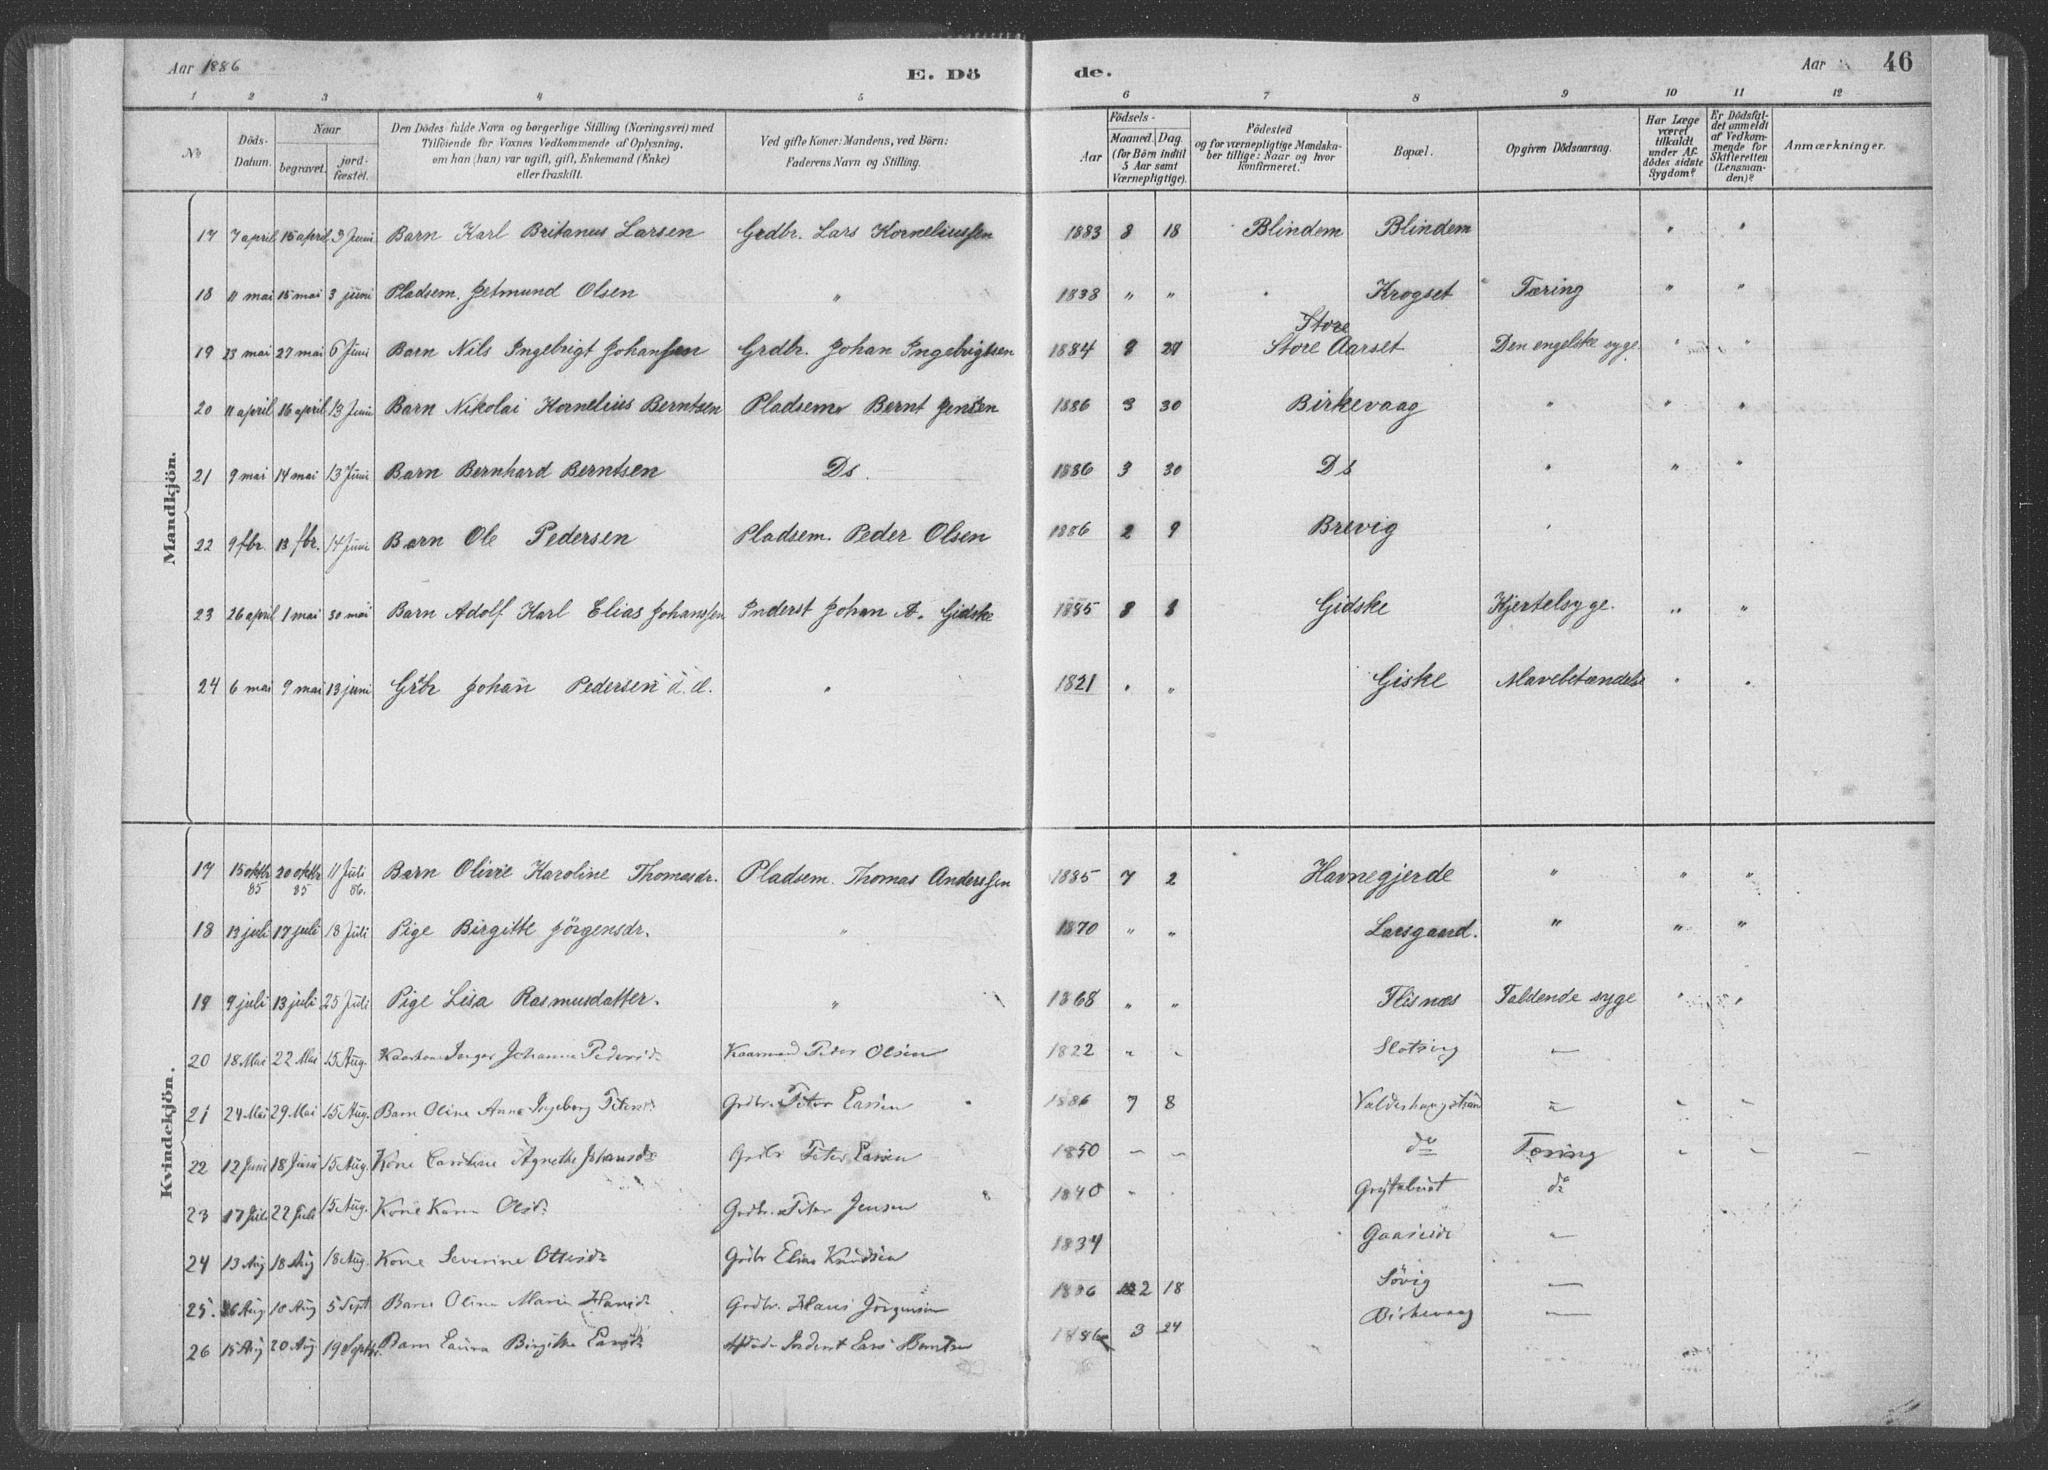 Aar 1886 E. Dö de. Aar 46
1 2 3 4 5 6 7 8 9 10 11 12
No Döds-Datum. Naar begravet. jord-fæstet. Den Dödes fulde Navn og borgerlige Stilling (Næringsvei) med Tilföiende for Voxnes Vedkommende af Oplysning, om han (hun) var ugift, gift, Enkemand (Enke) eller fraskilt. Ved gifte Koner: Mandens, ved Börn: Faderens Navn og Stilling. Födsels- Aar Maaned. Dag. (for Börn indtil 5 Aar samt Værnepligtige). Födested og for værnepligtige Mandska-ber tillige: Naar og hvor konfirmeret. Bopæl. Opgiven Dödsaarsag. Har Læge været tilkaldt under Af-dödes sidste Sygdom? Er Dödsfal-det anmeldt af Vedkom-mende for Skifteretten (Lensman-den)? Anmærkninger.
Mandkjön.
17 7 april 15 april 3 Juni Barn Karl Britanus Larsen Grdbr. Lars Korneliussen 1883 8 18 Blindem Blindem " "
18 11 mai 15 mai 3 juni Pladsem. Jetmund Olsen " 1838 " " Krogset Tæring " "
Store
19 23 mai 27 mai 6 Juni Barn Nils Ingebrigt Johanssen Grdbr. Johan Ingebrigtsen 1884 9 27 Store Aarset Den engelske syge. " "
20 11 april 16 april 13 Juni Barn Nikolai Kornelius Berntsen Pladsem. Bernt Jensen 1886 3 30 Birkevaag " " "
21 9 mai 14 mai 13 Juni Barn Bernhard Berntsen Ds. 1886 3 30 Ds " " "
22 9 fbr. 13 fbr. 14 Juni Barn Ole Pedersen Pladsem. Peder Olsen 1886 2 9 Brevig "
23 26 april 1 mai 30 mai Barn Adolf Karl Elias Johanssen Inderst Johan A. Gidske 1885 8 8 Gidske Kjertelsyge. " "
24 6 mai 9 mai 13 juni Grbr Johan Pedersen d. æ. " 1821 " " Giske Mavebetændelse " "
Kvindekjön.
17 15 oktbr 85 20 oktbr 85 11 Juli 86. Barn Olivie Karoline Thomasdr. Pladsem. Thomas Anderssen 1885 7 2 Havnegjerde " " "
18 13 juli 17 juli 18 Juli Pige Birgitte Jörgensdr. " 1870 " " Larsgaard. " " "
19 9 juli 13 juli 25 Juli Pige Lisa Rasmusdatter. " 1868 " " Flisnæs Faldende syge " "
20 18 Mai 22 Mai 15 Aug. Johanne Pedersd. Kaarmand Peder Olsen 1822 " " Slotsvig "
21 24 Mai 29 Mai 15 Aug. Barn Oline Anna Ingeborg Petersd. Grdbr. Peter Larsen 1886 7 8 Valderhaugstrand " " "
22 12 Juni 18 Juni 15 Aug. Kone Caroline Agnethe Johansd. Grdbr Peter Larsen 1850 " " do Tæring " " "
23 17 Juli 22 Juli 15 Aug. Kone Karen Olsd. Grdbr. Peter Jensen 1840 " " do
24 13 Aug 18 Aug 18 Aug. Kone Severine Ottesd. Grdbr Elias Knudsen 1834 Gaaseide "
25. 6 Aug 10 Aug 5 Sept. Barn Oline Marie Hansd. Grdbr. Hans Jörgensen 1886 2 18 Sövig "
26 15 Aug 20 Aug 19 Septbr. Barn Laura Birgithe Larsd. Inderst Lars Berntsen 1886 3 24 Birkevaag "